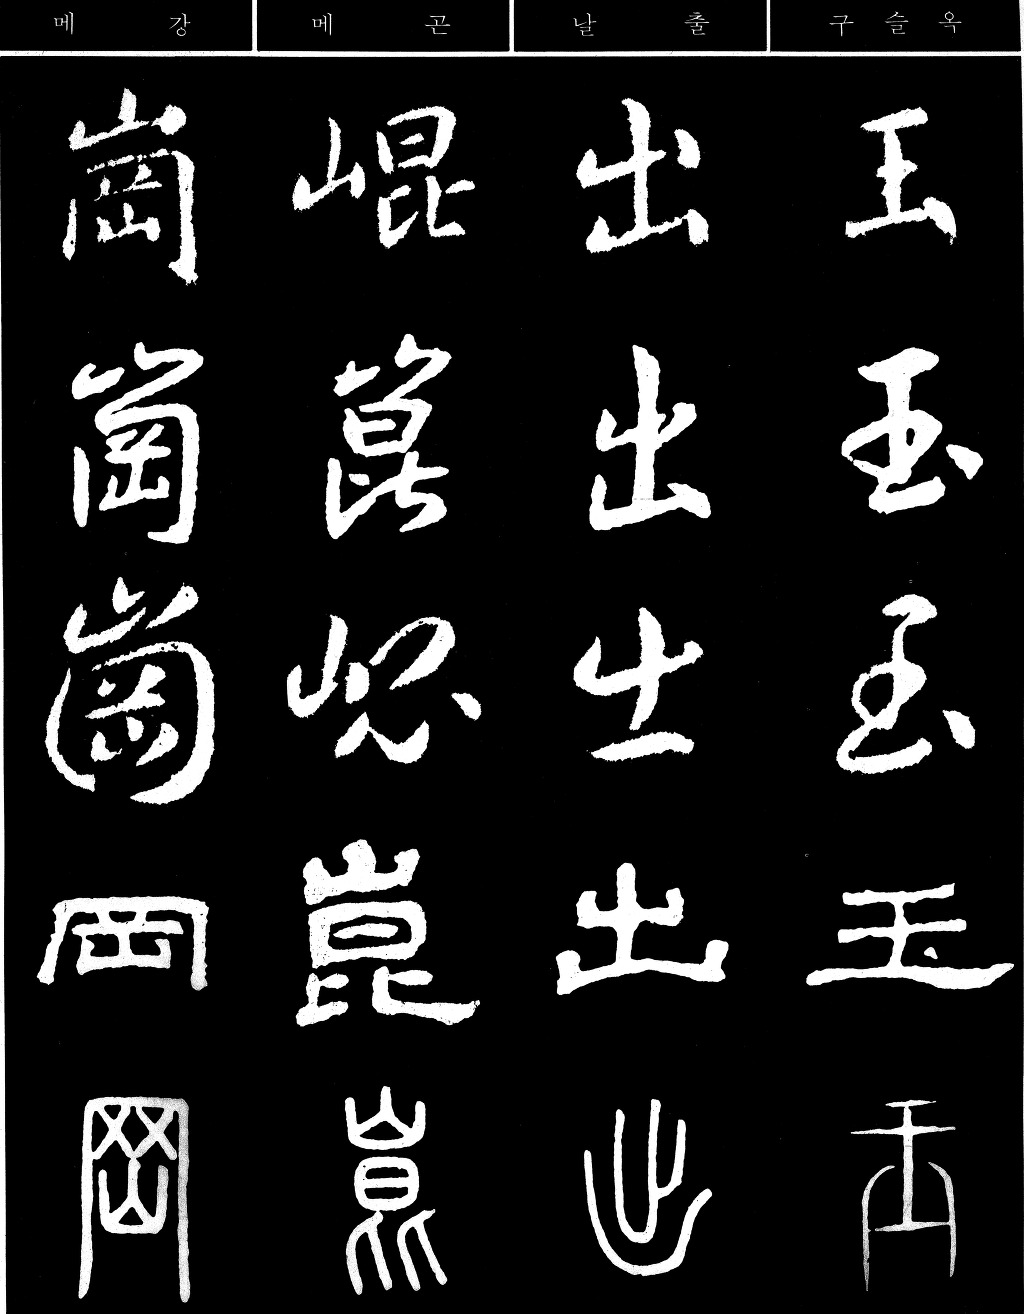 메 강 메 곤 날 출 구슬 옥
崗 崐 出 玉
崗 崑 出 玉
崗 崐 出 玉
岡 崑 出 玉
岡 崑 出 玉